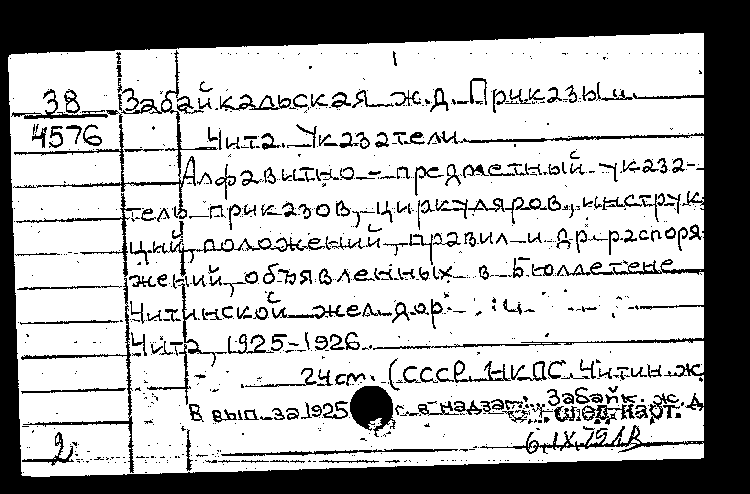 38 Забайкальская ж.д. Приказы и.
4576 Чита. Указатели.
Алфавитно-предметный указа-
тель приказов, циркуляров, инструк
ций, положений, правил и др. распоря
жений, объявленных в Бюллетене
Читинской жел. дор.
Чита, 1925-1926.
24 см. (СССР. НКПС. Читин. ж
В вып. за 1925 с. в надзаг.: Забайк. ж.д
См. след. карт.
2 6.IX.79